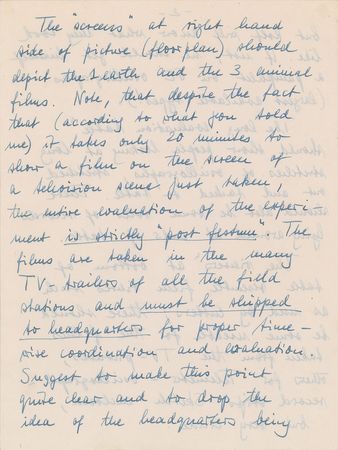 The "screens" at right hand
side of picture (floorplan) should
depict the 1 earth and the 3 animal
films. Note, that despite the fact
that (according to what you told
me) it takes only 20 minutes to
show a film on the screen of
a television scene just taken,
the entire evaluation of the experi-
ment is strictly "post festum". The
films are taken in the many
TV-trailers of all the field
stations and must be shipped
to headquarters for proper time-
wise coordination and evaluation.
Suggest to make this point
quite clear and to drop the
idea of the headquarters being